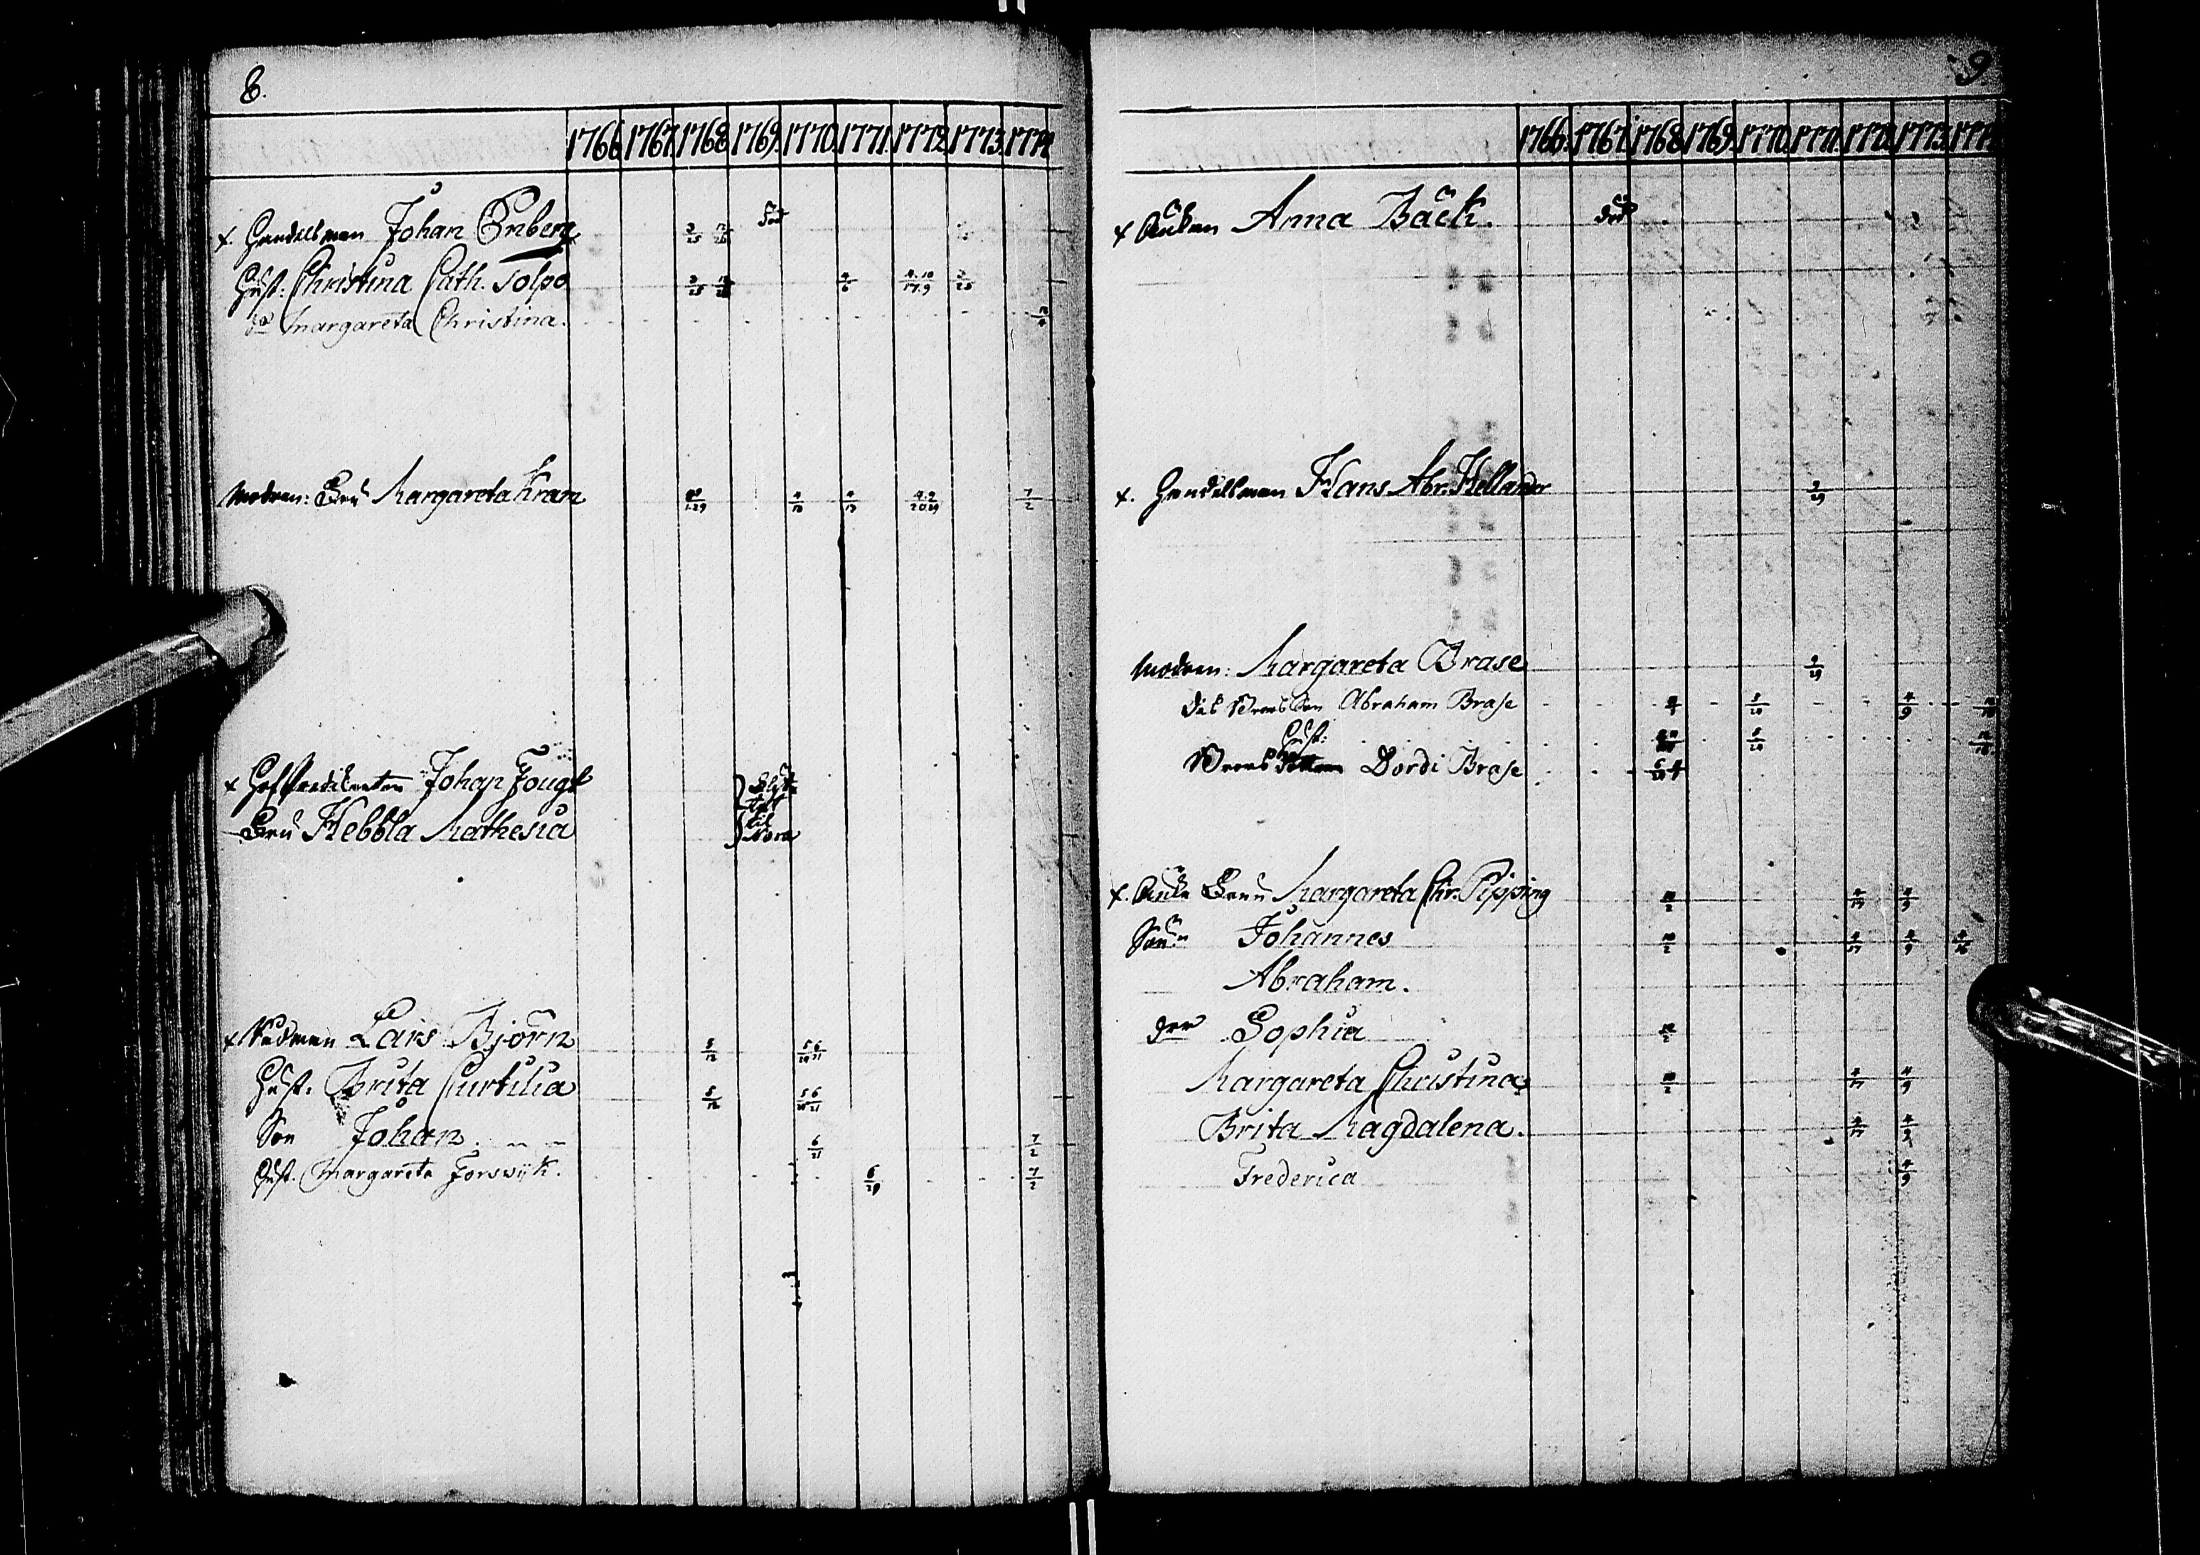 8.
1766 1767 1768 1769 1770 1771 1772 1773 1774
x. Handelsman Johan Enberg 3/25 död
Hust: Christina Cath. Tolpo 3/25 4/6 4.10/17.9 3/25
Margareta Christina.
Modren: Fru Margareta Kran 4/13 7/2
x Hofpredikanten Johan Fougt flyttat til Nora
Fru Hebbla Mathesia
x Rådman Lars Björn 5/12 5 6/21
Hust: Brita Curtilia 5/12 5 6/21
Son Johan 6/21 7/2
Hust. Margareta Forswijk. 6/29 7/2
9
1766 1767 1768 1769 1770 1771 1772 1773
x Enkan Anna Bäck. död
x. Handelsman Hans Abr. Hellander 9/29
Modren: Margareta Brase 9/29
Son Abraham Brase 5/20 4/9
Hust:
Dordi Brase
x. Enke Fru Margareta Chr. Pipping 10/2 4/17 4/9
Son Johannes 10/2 4/17 4/9
Abraham.
Sophia
Margareta Christina 10/2 4/17 4/9
Brita Magdalena. 4/17 4/9
Frederica 4/9